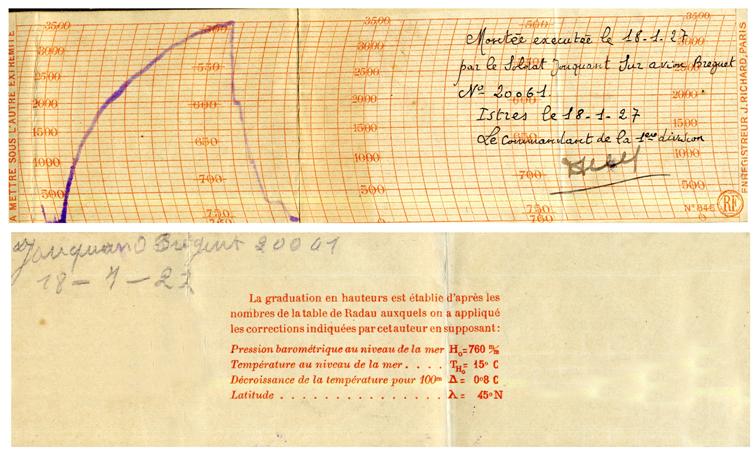 A METTRE SOUS L'AUTRE EXTRÉMITÉ
3500
3000
2500
2000
1500
1000
500
0
550
600
650
700
750
760
Montée executée le 18-1-27
par le Soldat Jouquant Sur avion Breguet
N° 20061.
Istres le 18-1-27
Le Commandant de la 1ere division
ENREGISTREUR J. RICHARD, PARIS
N° 846
RF
Breguet 20061
18-1-27
La graduation en hauteurs est établie d'après les
nombres de la table de Radau auxquels on a appliqué
les corrections indiquées par cet auteur en supposant :
Pression barométrique au niveau de la mer H₀=760 m/m
Température au niveau de la mer . . . . T H₀= 15° C
Décroissance de la température pour 100m Δ= 0°8 C
Latitude . . . . . . . . . . . . . . λ= 45° N